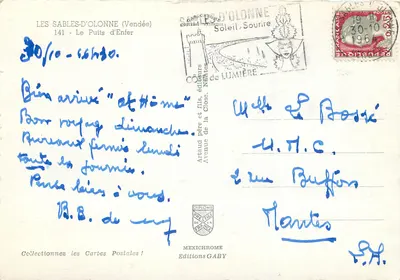 LES SABLES-D'OLONNE (Vendée)
141 - Le Puits d'Enfer
30/10 - 14h30.
Bien arrivé "at Home"
Bon voyage dimanche.
Bureaux fermés lundi
toute la journée.
Pense bien à vous.
B.B. de
Collectionnez les Cartes Postales !
Artaud père et fils, éditeurs
Avenue de la Close Nantes
MEXICHROME
Editions GABY
SABLES D'OLONNE
Soleil. Sourire
CÔTE de LUMIÈRE
30-10
Mlle Le Bossé
U.M.C.
2 rue Buffon
Nantes
L.A.